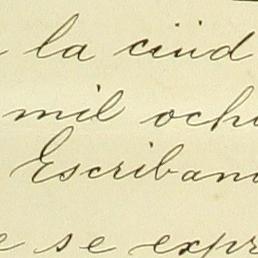 la ciud
mil och
Escriban
e se expr